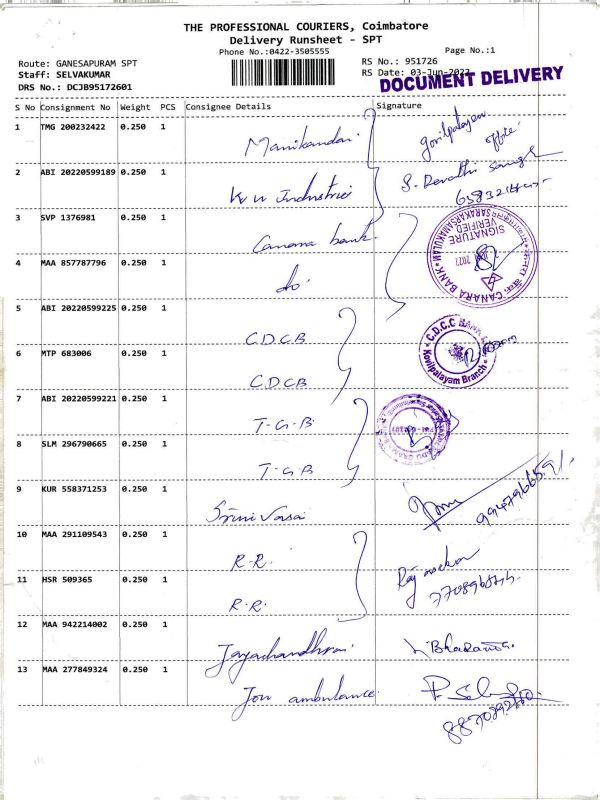 THE PROFESSIONAL COURIERS, Coimbatore
Delivery Runsheet - SPT
Phone No.:0422-3505555
Page No.:1
Route: GANESAPURAM SPT
RS No.: 951726
Staff: SELVAKUMAR
RS Date: 03-Jun-2022
DOCUMENT DELIVERY
DRS No.: DCJB95172601
S No Consignment No Weight PCS Consignee Details Signature
1 TMG 200232422 0.250 1 Manikandan
office
2 ABI 20220599189 0.250 1 K V Industries S. Revathi
3 SVP 1376981 0.250 1 Canara bank
SIGNATURE VERIFIED
CANARA BANK * SARKARSAMAKULAM
4 MAA 857787796 0.250 1 do
5 ABI 20220599225 0.250 1 CDCB
C.D.C.C BANK
Kovilpalayam Branch
6 MTP 683006 0.250 1 CDCB
7 ABI 20220599221 0.250 1 T-G-B
8 SLM 296790665 0.250 1 T-G-B
9 KUR 558371253 0.250 1 Srinivasa
10 MAA 291109543 0.250 1 R.R.
11 HSR 509365 0.250 1 R.R.
12 MAA 942214002 0.250 1 Jayachandhran
13 MAA 277849324 0.250 1 Jon ambulance